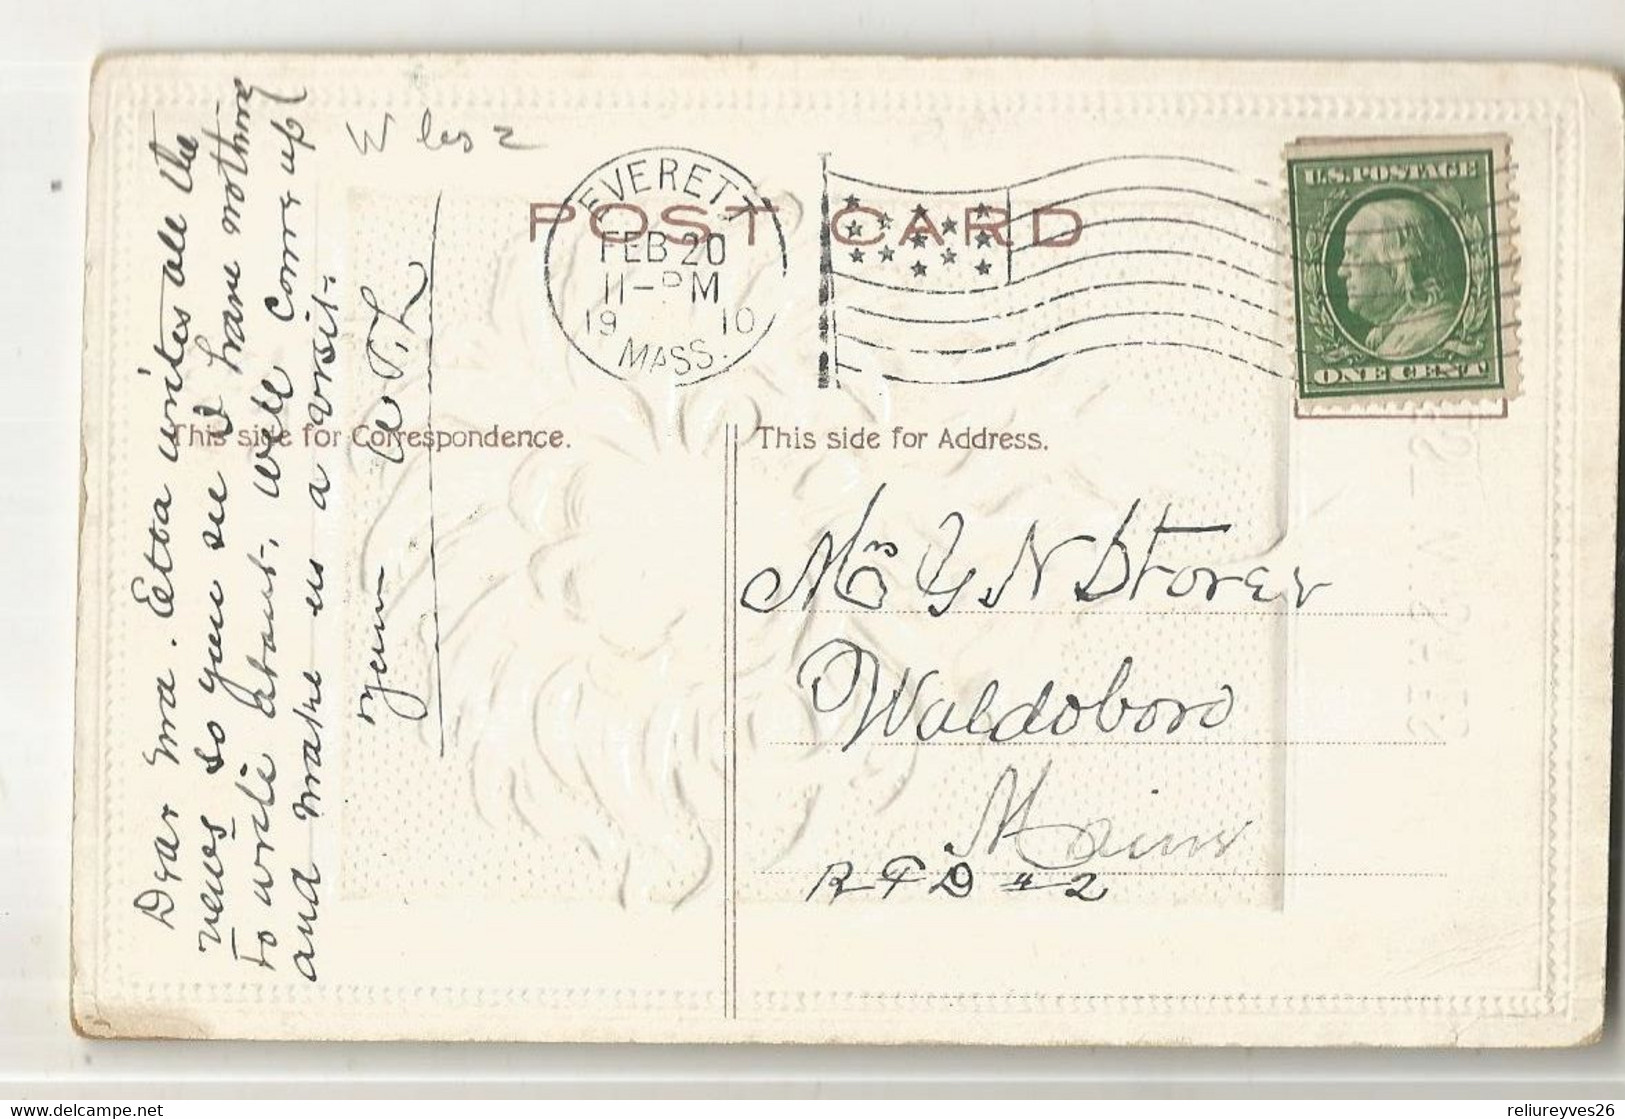 Dear Ma. Etta writes all the
news so you see I have nothing
to write about, well come up
and make us a visit.
W
EVERETT
FEB 20
11-PM
19 10
MASS.
POST CARD
U.S. POSTAGE
ONE CENT
This side for Correspondence.
This side for Address.
Mrs G N Storer
Waldoboro
Maine
RFD #2
delcampe.net
reliureyves26